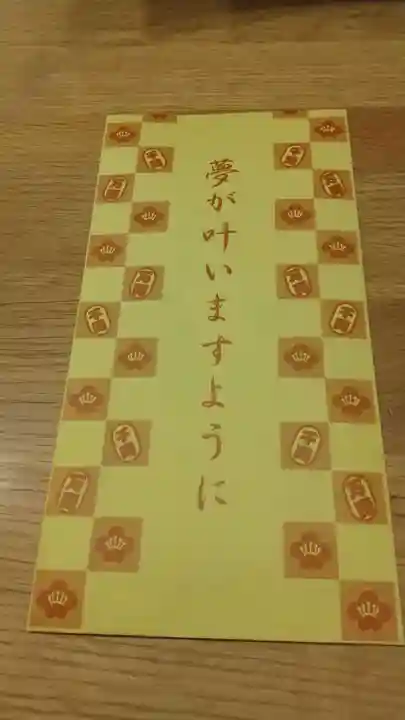 夢が叶いますように